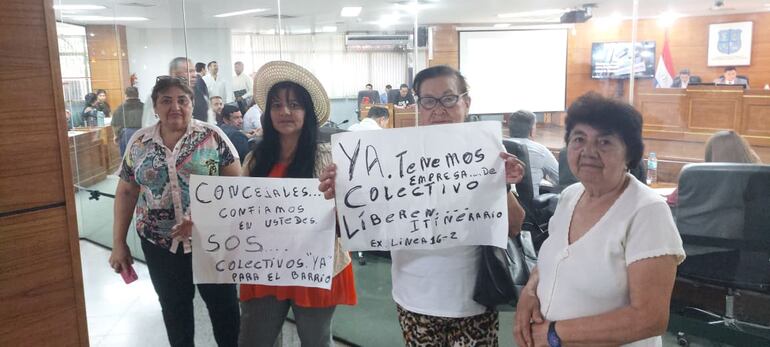 CONCEJALES...
CONFIAMOS
EN USTEDES.
SOS....
COLECTIVOS."YA"
PARA EL BARRIO
YA. TENEMOS
EMPRESA....DE
COLECTIVO
LÍBEREN....
ITIÑERARIO
EX LINEA 16-2